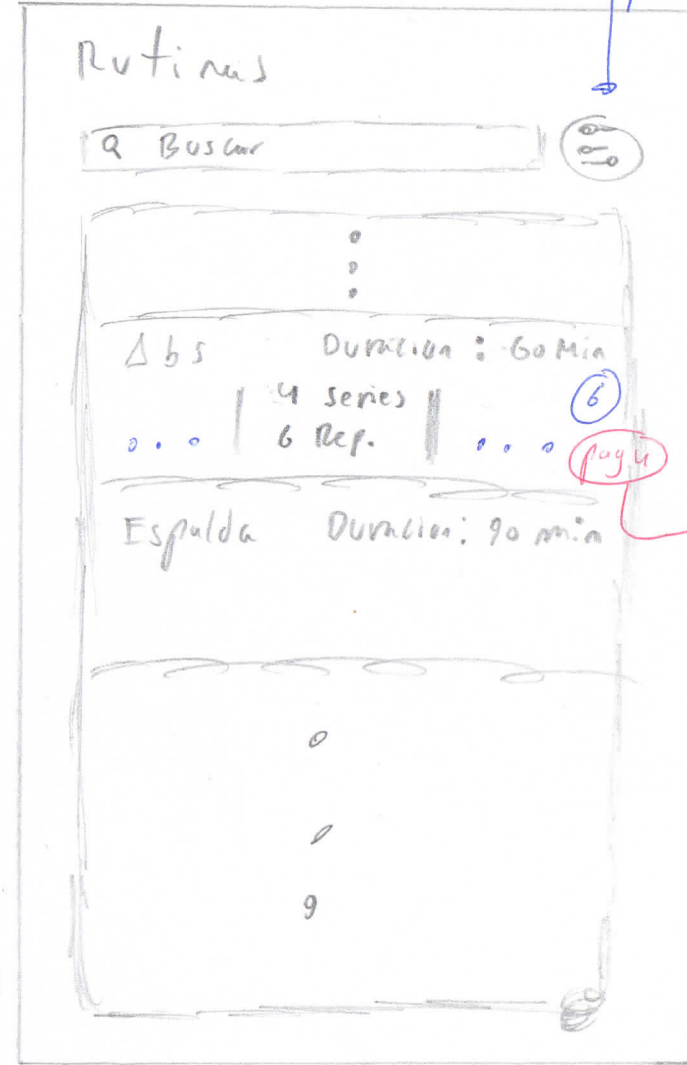 Rutinas
Buscar
Abs Duración: 60 Min
4 series
6 Rep.
6
... ...
Espalda Duración: 90 min